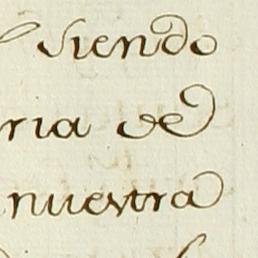 siendo
ria de
nuestra